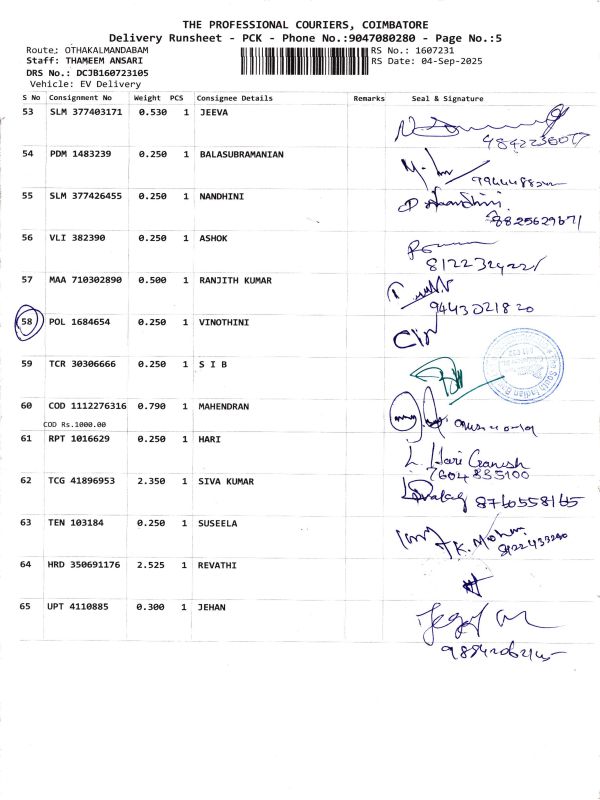 THE PROFESSIONAL COURIERS, COIMBATORE
Delivery Runsheet - PCK - Phone No.:9047080280 - Page No.:5
Route: OTHAKALMANDABAM
RS No.: 1607231
Staff: THAMEEM ANSARI
RS Date: 04-Sep-2025
DRS No.: DCJB160723105
Vehicle: EV Delivery
S No Consignment No Weight PCS Consignee Details Remarks Seal & Signature
53 SLM 377403171 0.530 1 JEEVA
54 PDM 1483239 0.250 1 BALASUBRAMANIAN
55 SLM 377426455 0.250 1 NANDHINI
8825629671
56 VLI 382390 0.250 1 ASHOK
57 MAA 710302890 0.500 1 RANJITH KUMAR
9443021820
58 POL 1684654 0.250 1 VINOTHINI
59 TCR 30306666 0.250 1 S I B
South Indian
60 COD 1112276316 0.790 1 MAHENDRAN
COD Rs.1000.00
61 RPT 1016629 0.250 1 HARI
L. Hari Ganesh
7604835100
62 TCG 41896953 2.350 1 SIVA KUMAR
8760558165
63 TEN 103184 0.250 1 SUSEELA
K. Mohan
64 HRD 350691176 2.525 1 REVATHI
65 UPT 4110885 0.300 1 JEHAN